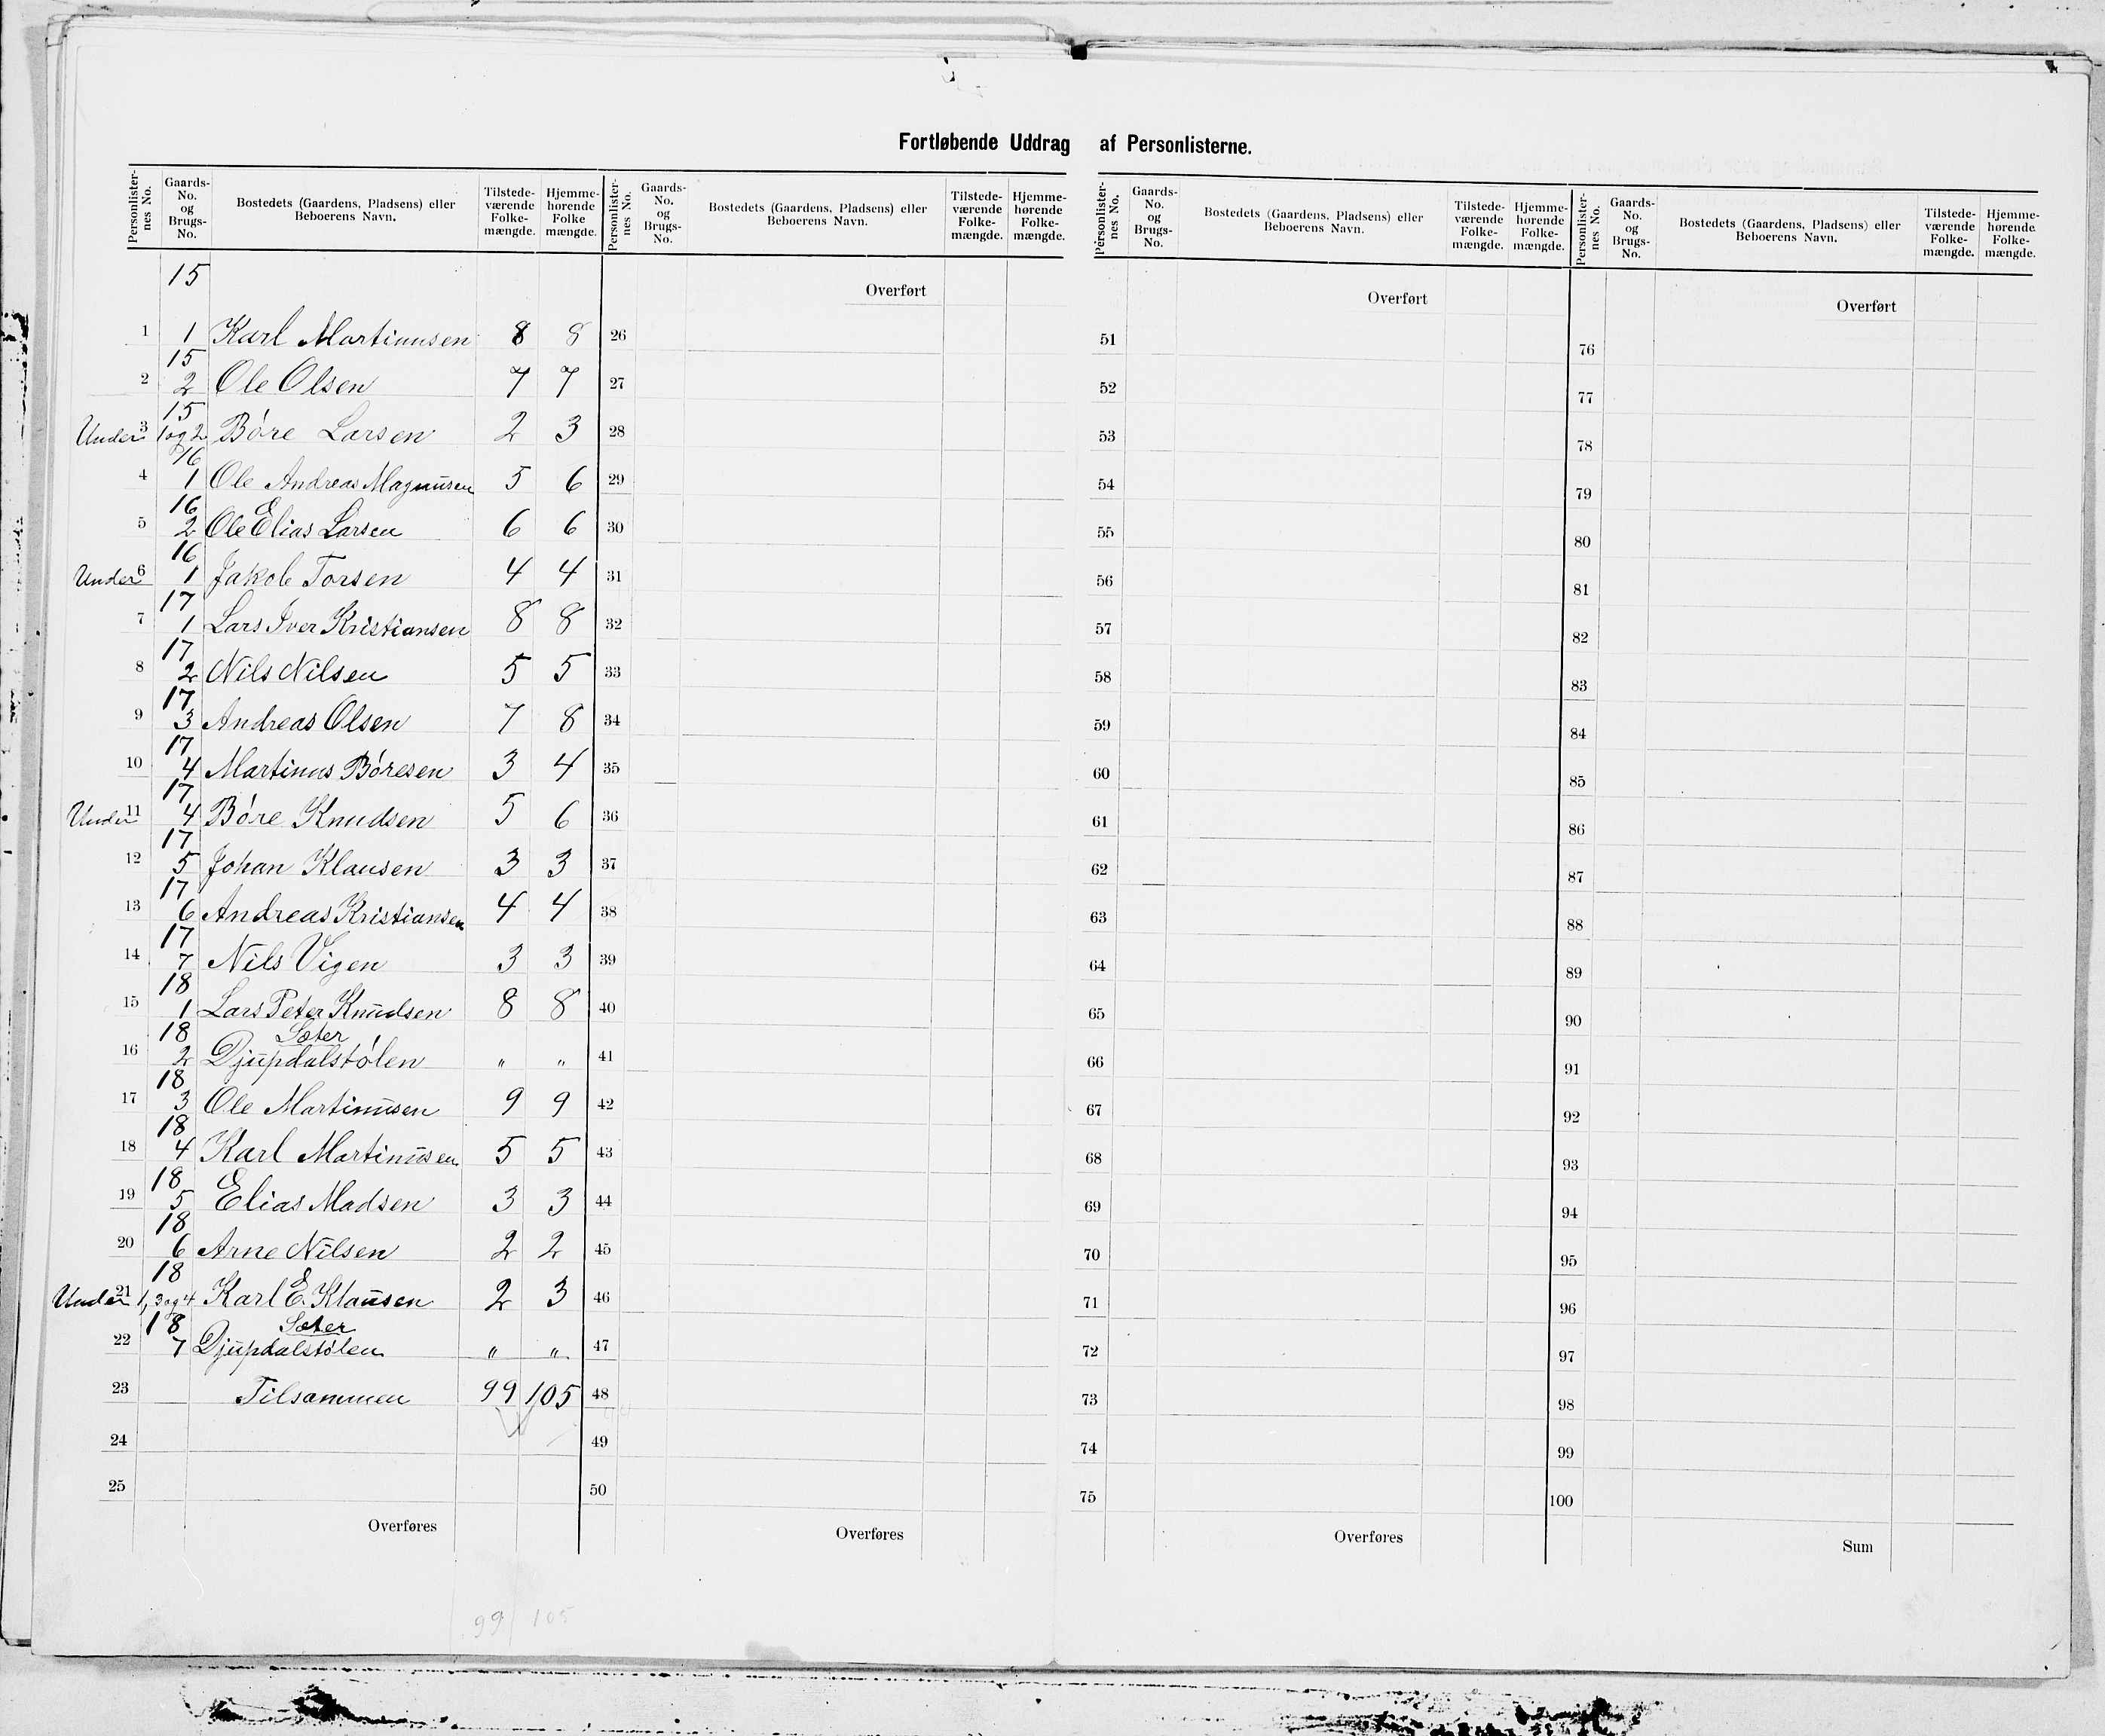 Fortløbende Uddrag af Personlisterne.
Personlisternes No. Gaards-No. og Brugs-No. Bostedets (Gaardens, Pladsens) eller Beboerens Navn. Tilstedeværende Folkemængde. Hjemmehørende Folkemængde.
Personlisternes No. Gaards-No. og Brugs-No. Bostedets (Gaardens, Pladsens) eller Beboerens Navn. Tilstedeværende Folkemængde. Hjemmehørende Folkemængde.
Personlisternes No. Gaards-No. og Brugs-No. Bostedets (Gaardens, Pladsens) eller Beboerens Navn. Tilstedeværende Folkemængde. Hjemmehørende Folkemængde.
Personlisternes No. Gaards-No. og Brugs-No. Bostedets (Gaardens, Pladsens) eller Beboerens Navn. Tilstedeværende Folkemængde. Hjemmehørende Folkemængde.
15 Overført Overført Overført
1 1 Karl Martinusen 8 8 26 51 76
15
2 2 Ole Olsen 7 7 27 52 77
15
Under 3 1 og 2 Børe Larsen 2 3 28 53 78
16
4 1 Ole Andreas Magnusen 5 6 29 54 79
16
5 2 Ole Elias Larsen 6 6 30 55 80
16
Under 6 1 Jakob Torsen 4 4 31 56 81
17
7 1 Lars Iver Kristiansen 8 8 32 57 82
17
8 2 Nils Nilsen 5 5 33 58 83
17
9 3 Andreas Olsen 7 8 34 59 84
17
10 4 Martinus Børesen 3 4 35 60 85
17
Under 11 4 Børe Knudsen 5 6 36 61 86
17
12 5 Johan Klausen 3 3 37 62 87
17
13 6 Andreas Kristiansen 4 4 38 63 88
17
14 7 Nils Vigen 3 3 39 64 89
18
15 1 Lars Peter Knudsen 8 8 40 65 90
18 Sæter
16 2 Djupdalstølen " " 41 66 91
18
17 3 Ole Martinusen 9 9 42 67 92
18
18 4 Karl Martinusen 5 5 43 68 93
18
19 5 Elias Madsen 3 3 44 69 94
18
20 6 Arne Nilsen 2 2 45 70 95
18
Under 21 1, 3 og 4 Karl E. Klausen 2 3 46 71 96
18 Sæter
22 7 Djupdalstølen " " 47 72 97
23 Tilsammen 99 105 48 73 98
24 49 74 99
25 50 75 100
Overføres Overføres Overføres Sum
99 105